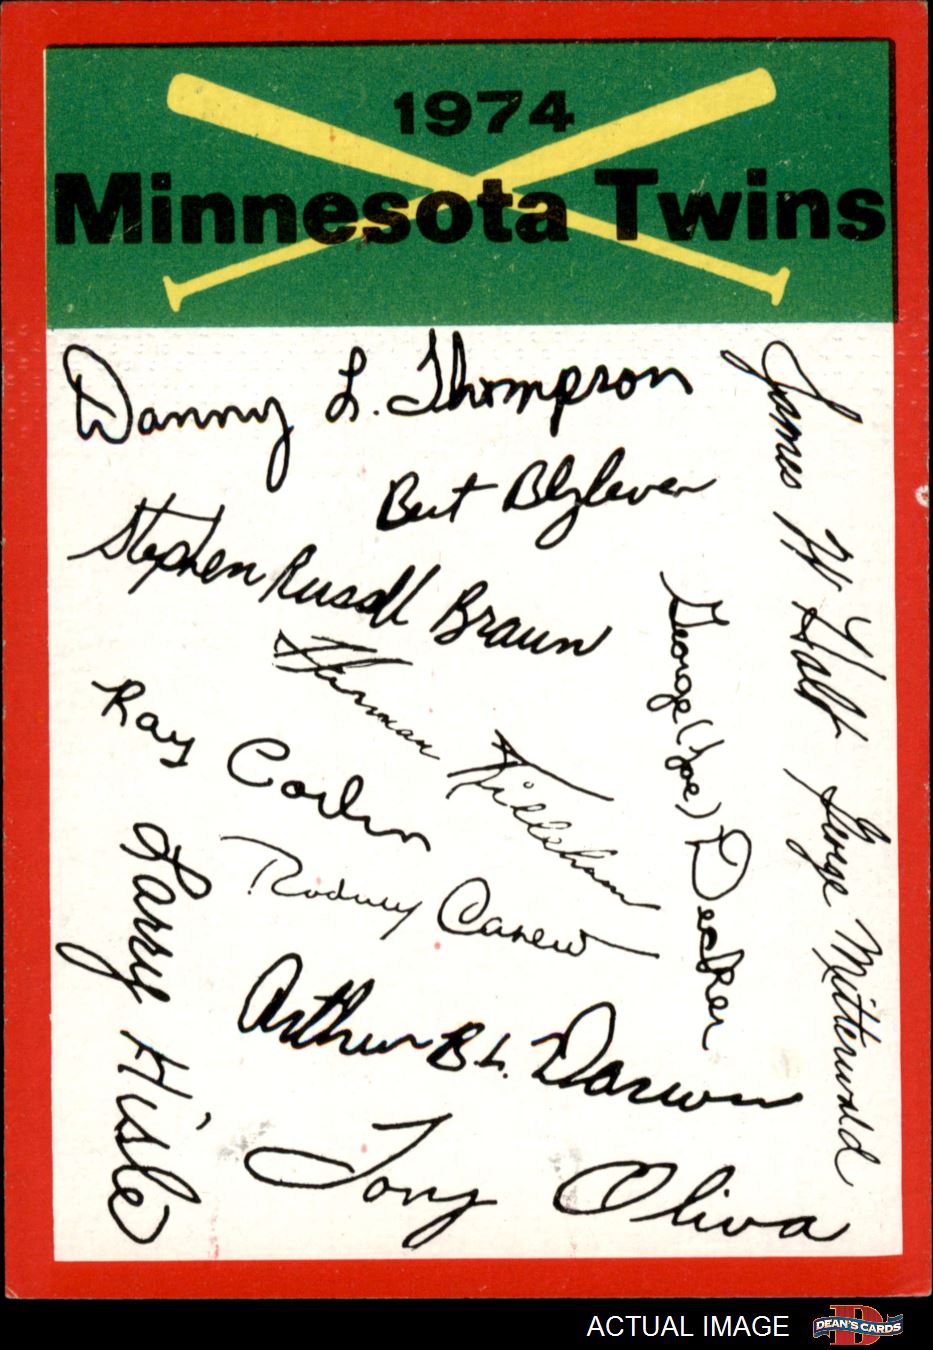 1974
Minnesota Twins
Danny L. Thompson
Bert Blyleven
Stephen Russell Braun
Harman Killebrew
Ray Corbin
Rodney Carew
Larry Hisle
Arthur B. L. Darwin
Tony Oliva
George (Joe) Decker
James W Holt
George Mitterwald
ACTUAL IMAGE
DEAN'S CARDS